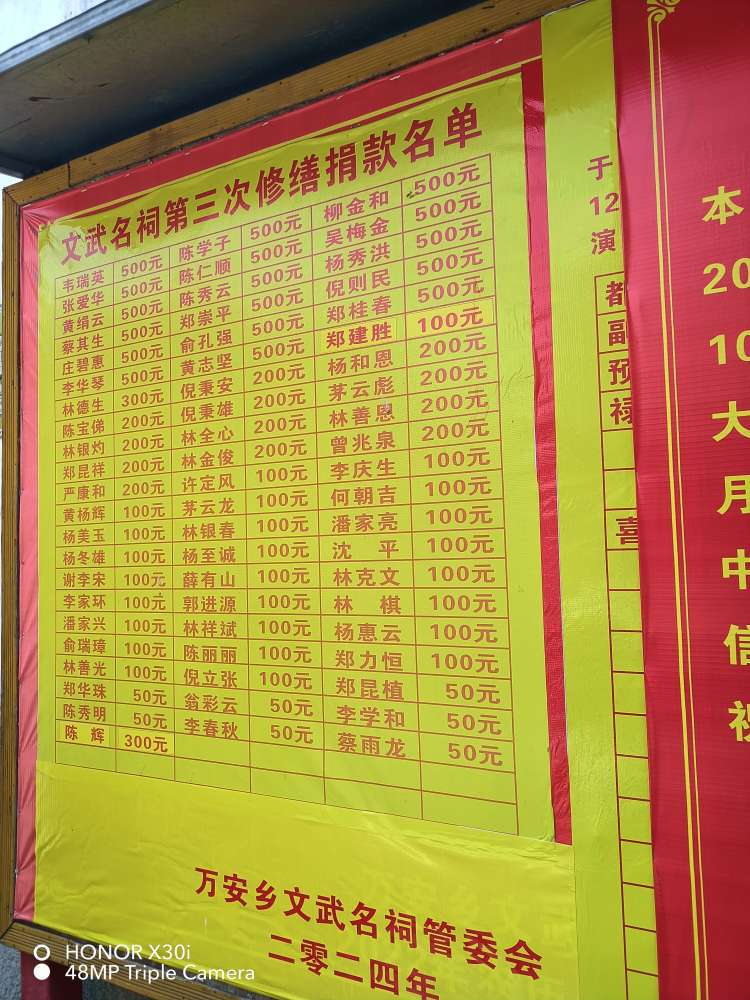 文武名祠第三次修缮捐款名单
韦瑞英 500元 陈学子 500元 柳金和 500元
张爱华 500元 陈仁顺 500元 吴梅金 500元
黄绢云 500元 陈秀云 500元 杨秀洪 500元
蔡其生 500元 郑崇平 500元 倪则民 500元
庄碧惠 500元 俞孔强 500元 郑桂春 500元
李华琴 500元 黄志坚 500元 郑建胜 100元
林德生 300元 倪秉安 200元 杨和恩 200元
陈宝俤 200元 倪秉雄 200元 茅云彪 200元
林银灼 200元 林全心 200元 林善恩 200元
郑昆祥 200元 林金俊 200元 曾兆泉 200元
严康和 200元 许定风 100元 李庆生 100元
黄杨辉 100元 茅云龙 100元 何朝吉 100元
杨美玉 100元 林银春 100元 潘家亮 100元
杨冬雄 100元 杨至诚 100元 沈 平 100元
谢李宋 100元 薛有山 100元 林克文 100元
李家环 100元 郭进源 100元 林 棋 100元
潘家兴 100元 林祥斌 100元 杨惠云 100元
俞瑞璋 100元 陈丽丽 100元 郑力恒 100元
林善光 100元 倪立张 100元 郑昆植 50元
郑华珠 50元 翁彩云 50元 李学和 50元
陈秀明 50元 李春秋 50元 蔡雨龙 50元
陈 辉 300元
万安乡文武名祠管委会
二零二四年
于
12
演
都
副
预
禄
喜
本
20
10
大
月
中
信
祝
HONOR X30i
48MP Triple Camera